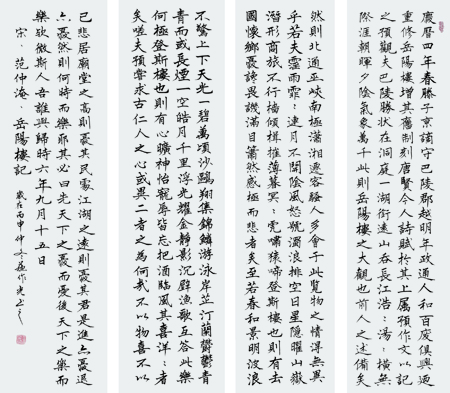 慶曆四年春滕子京謫守巴陵郡越明年政通人和百廢俱興迺
重修岳陽樓增其舊制刻唐賢今人詩賦於其上屬預作文以記
之預觀夫巴陵勝狀在洞庭一湖銜遠山吞長江浩：湯：橫無
際涯朝暉夕陰氣象萬千此則岳陽樓之大觀也前人之述備矣
然則北通巫峽南極瀟湘遷客騷人多會于此覽物之情得無異
乎若夫霪雨霏：連月不開陰風怒號濁浪排空日星隱曜山嶽
潛形商旅不行檣傾楫摧薄暮冥：虎嘯猿啼登斯樓也則有去
國懷鄉憂讒畏譏滿目蕭然感極而悲者矣至若春和景明波浪
不驚上下天光一碧萬頃沙鷗翔集錦鱗游泳岸芷汀蘭鬱鬱青
青而或長煙一空皓月千里浮光耀金靜影沉璧漁歌互答此樂
何極登斯樓也則有心曠神怡寵辱皆忘把酒臨風其喜洋：者
矣嗟夫預嘗求古仁人之心或異二者之為何哉不以物喜不以
己悲居廟堂之高則憂其民處江湖之遠則憂其君是進亦憂退
亦憂然則何時而樂耶其必曰先天下之憂而憂後天下之樂而
樂歟微斯人吾誰與歸時六年九月十五日
宋·范仲淹·岳陽樓記 歲在丙申仲冬